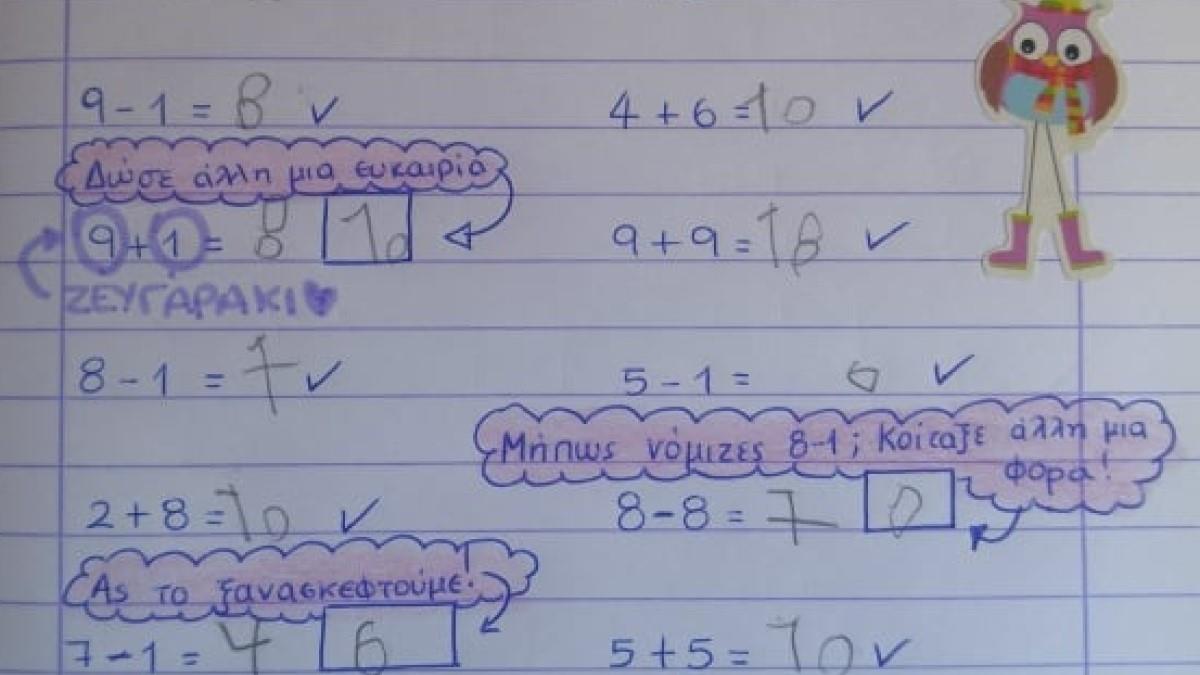 9 - 1 = 8 ✓ 4 + 6 = 10 ✓
Δώσε άλλη μια ευκαιρία
9 + 1 = 8 10 9 + 9 = 18 ✓
ΖΕΥΓΑΡΑΚΙ
8 - 1 = 7 ✓ 5 - 1 = ✓
Μήπως νόμιζες 8-1; Κοίταξε άλλη μια
φορά!
2 + 8 = 10 ✓ 8 - 8 = 7 0
Ας το ξανασκεφτούμε.
7 - 1 = 4 6 5 + 5 = 10 ✓